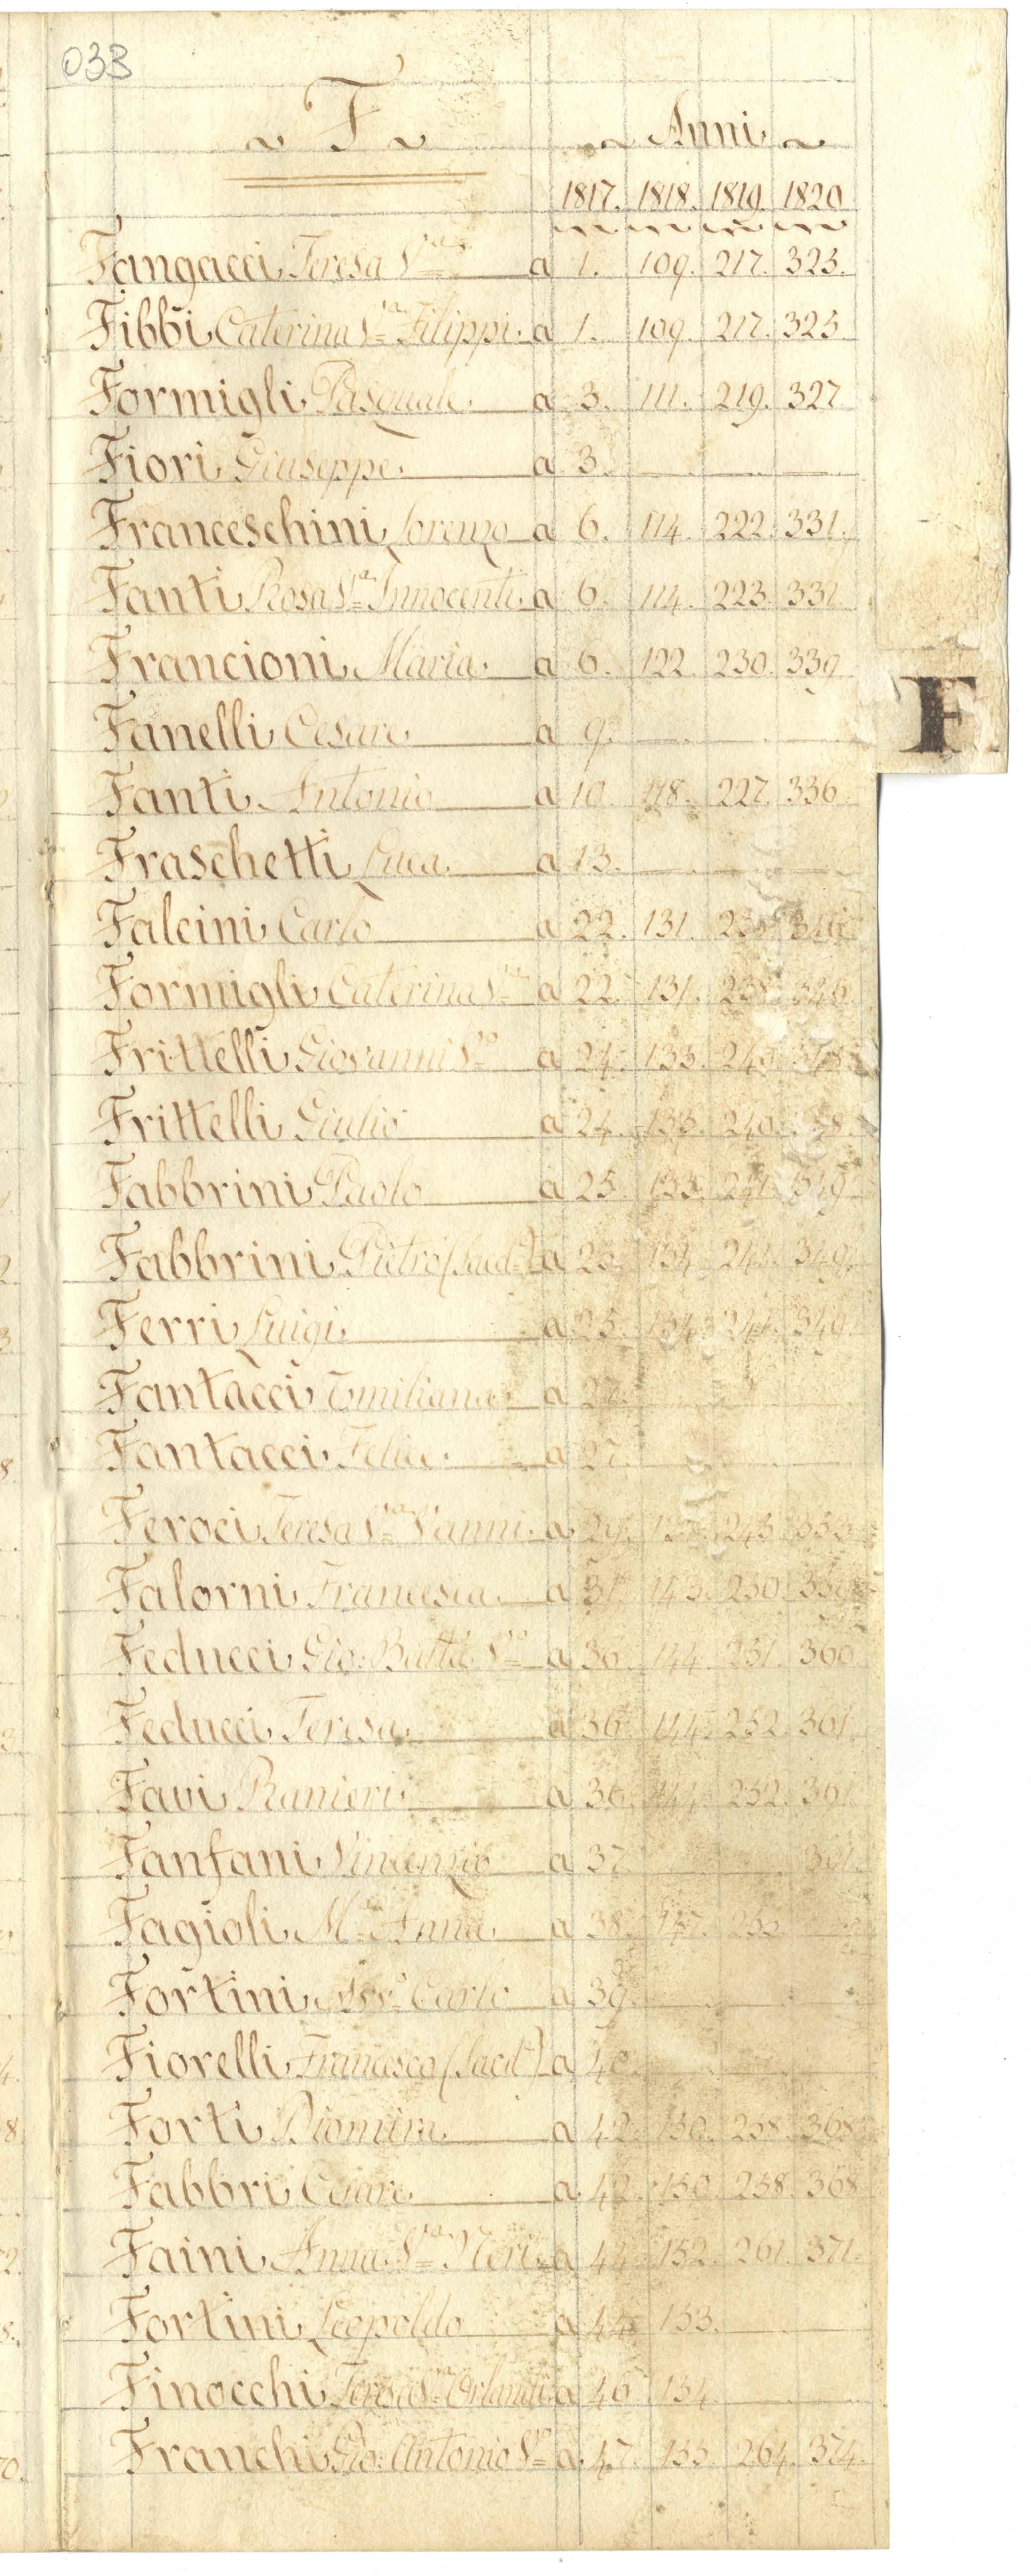 033
F
Anni
1817. 1818. 1819. 1820
Fangacci Teresa Va a 1. 109. 217. 323.
Fibbi Caterina Va Filippi a 1. 109. 217. 323
Formigli Pasquale a 3. 111. 219. 327
Fiori Giuseppe a 3.
Franceschini Lorenzo a 6. 114. 222. 331.
Fanti Rosa Va Innocenti a 6. 114. 223. 331
Francioni Maria a 6. 122. 230. 339
F
Fanelli Cesare a 9.
Fanti Antonio a 10. 118. 227. 336
Fraschetti Luca a 13.
Falcini Carlo a 22. 131.
Formigli Caterina Va a 22. 131. 238. 346
Frittelli Giovanni Vo a 24. 133. 240.
Frittelli Giulio a 24. 133. 240.
Fabbrini Paolo a 25. 133. 241. 349.
Fabbrini Pietro (Sacd.) a 25. 134. 241. 349.
Ferri Luigi a 25. 134. 241. 349
Fantacci Emiliana a 27.
Fantacci Felice a 27.
Feroci Teresa Va Vanni a 29. 245. 353
Falorni Francesca a 143. 250. 359
Feducci Gio: Batta Vo a 36. 144. 251. 360
Feducci Teresa a 36. 144. 252. 361
Favi Ranieri a 36. 144. 252. 361
Fanfani Vincenzio a 37 361.
Fagioli Ma Anna a 38. 147. 255
Fortini Carlo a 39.
Fiorelli Francesco (Sacd.) a 40.
Forti Diomira a 42. 150. 258. 368
Fabbri Cesare a 42. 150. 258. 368
Faini Anna Va Neri a 44. 152. 261. 371.
Fortini Leopoldo a 44. 153.
Finocchi Teresa Va Orlandi a 46 154.
Franchi Gio: Antonio Vo a 47. 155. 264. 374.